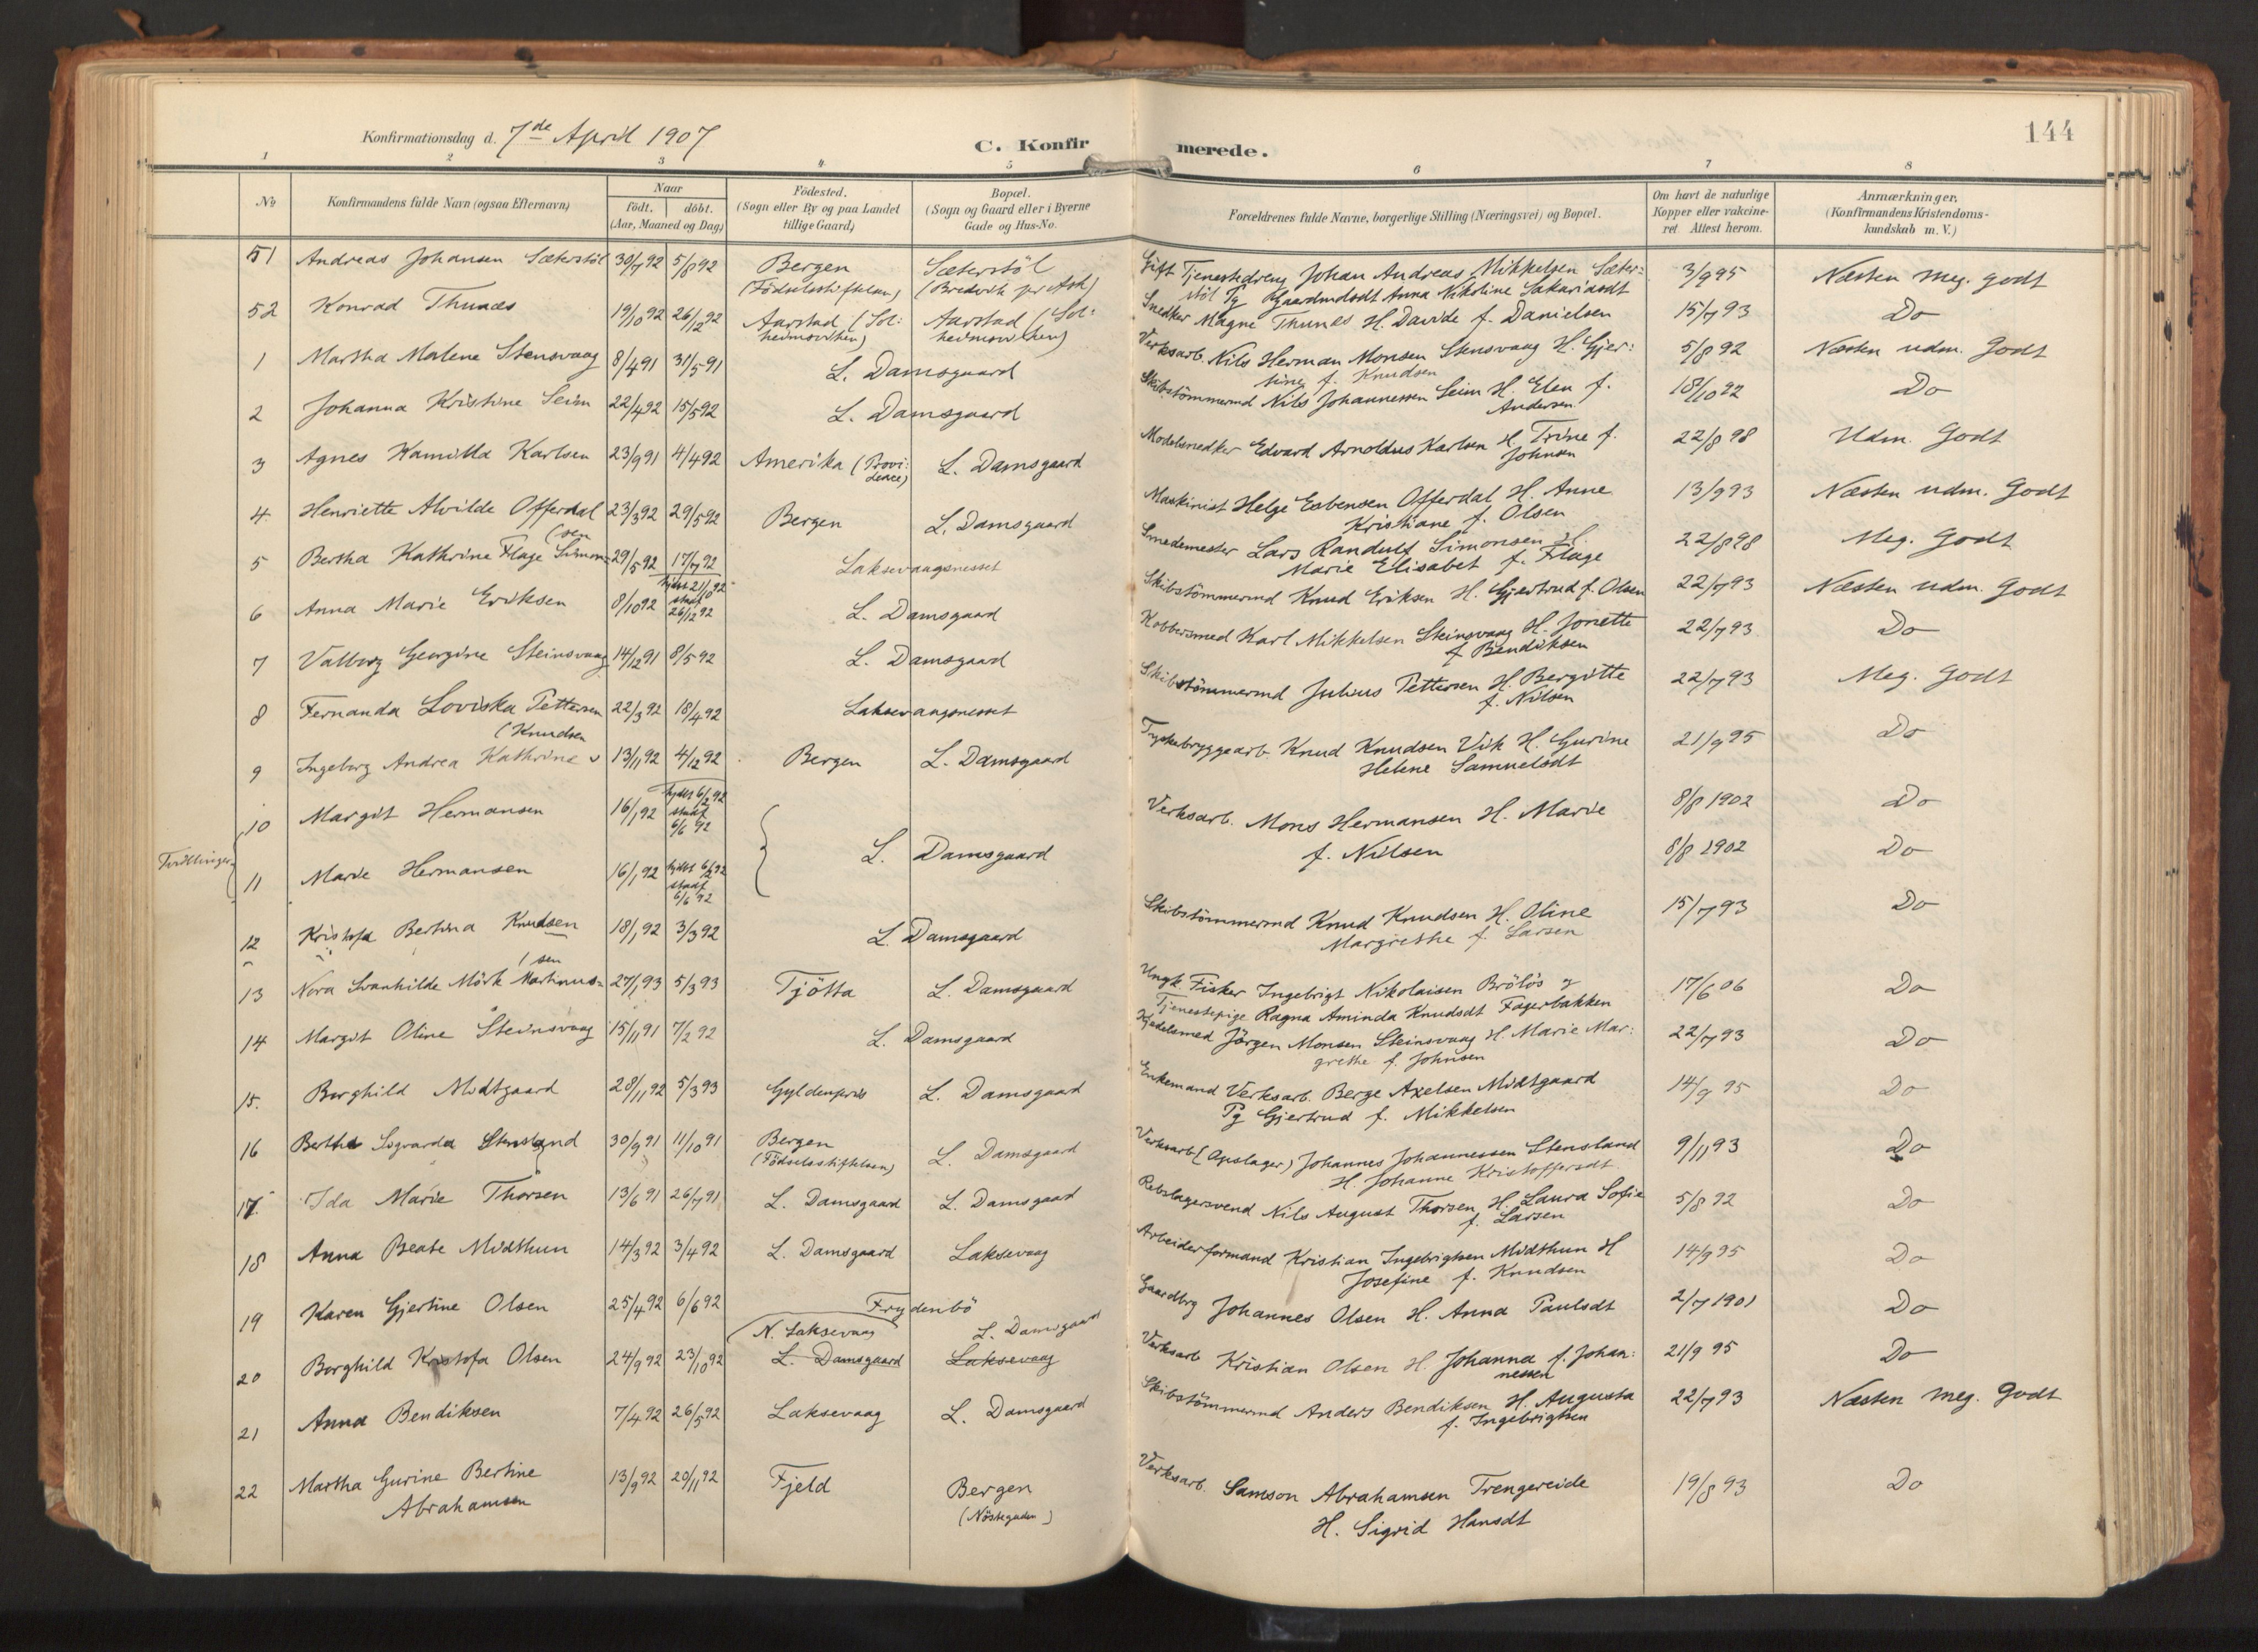 144
Konfirmationsdag d. 7de April 1907
C. Konfirmerede.
1 2 3 4 5 6 7 8
No
Konfirmandens fulde Navn (ogsaa Efternavn)
Naar
födt. | döbt.
(Aar, Maaned og Dag)
Födested.
(Sogn eller By og paa Landet
tillige Gaard)
Bopæl.
(Sogn og Gaard eller i Byerne
Gade og Hus-No.
Forældrenes fulde Navne, borgerlige Stilling (Næringsvei) og Bopæl.
Om havt de naturlige
Kopper eller vakcine-
ret. Attest herom.
Anmærkninger,
(Konfirmandens Kristendoms-
kundskab m. V.)
51 Andreas Johansen Sæterstöl 30/7 92 5/8 92 Bergen Sæterstöl Gift Tjenestedreng Johan Andreas Mikkelsen Sæter= 3/9 95 Næsten meg. godt
(Födselsstiftelsen) stöl Pg Gaardmdsdt Anna Nikoline Sakariasdt
52 Konrad Thunæs 19/10 92 26/12 92 Aarstad (Sol: Aarstad (Sol: Snedker Magne Thunes H. Davide f. Danielsen 15/7 93 Do
heimsviken) heimsviken)
1 Martha Malene Stensvaag 8/4 91 31/5 91 L. Damsgaard Verksarb. Nils Herman Monsen Stensvaag H. Gjer: 5/8 92 Næsten udm. Godt
tine f. Knudsen
2 Johanna Kristine Seim 22/4 92 15/5 92 L. Damsgaard Skibstömmermd Nils Johannessen Seim H. Elen f. 18/10 92 Do
Andersen
3 Agnes Kamilla Karlsen 23/9 91 4/4 92 Amerika (Provi: L. Damsgaard Modelsnedker Edvard Arnoldus Karlsen H. Trine f. 22/8 98 Udm. Godt
dence) Johnsen
4 Henriette Alvilde Offerdal 23/3 92 29/5 92 Bergen L. Damsgaard Maskinist Helge Esbensen Offerdal H. Anne 13/9 93 Næsten udm. Godt
Kristiane f. Olsen
(sen
5 Bertha Kathrine Flage Simon= 29/5 92 17/7 92 Laksevaagsnesset Smedemester Lars Randulf Simonsen H. 22/8 98 Meg. Godt
Marie Elisabet f. Flage
6 Anna Marie Eriksen 8/10 92 hjdbt 21/10 92 L. Damsgaard Skibstömmermd Knud Eriksen H. Gjertrud f. Olsen 22/7 93 Næsten udm. Godt
stadf
26/12 92
7 Valborg Georgine Steinsvaag 14/12 91 8/5 92 L. Damsgaard Kobbersmed Karl Mikkelsen Steinsvaag H. Jonette 22/7 93 Do
f. Bendiksen
8 Fernanda Loviska Pettersen 22/3 92 18/4 92 Laksevaagsnesset Skibstömmermd Julius Pettersen H. Bergitte 22/7 93 Meg. Godt
f. Nilsen
(Knudsen
9 Ingeborg Andrea Kathrine 13/11 92 4/12 92 Bergen L. Damsgaard Tyskebryggearb. Knud Knudsen Vik H. Gurine 21/9 95 Do
Helene Samuelsdt
Tvillinger
10 Margit Hermansen 16/1 92 hjdbt 6/2 92 Verksarb. Mons Hermansen H. Marie 8/8 1902 Do
stadf
6/6 92
L. Damsgaard f. Nilsen
11 Marie Hermansen 16/1 92 hjdbt 6/2 92 8/8 1902 Do
stadf
6/6 92
12 Kristofa Bertina Knudsen 18/1 92 3/3 92 L. Damsgaard Skibstömmermd Knud Knudsen H. Oline 15/7 93 Do
Margrethe f. Larsen
(sen
13 Nora Svanhilde Mörk Martinus= 27/1 93 5/3 93 Tjötta L. Damsgaard Ungk. Fisker Ingebrigt Nikolaisen Brölös og 17/6 06 Do
Tjenestepige Ragna Aminda Knudsdt Fagerbakken
14 Margit Oline Steinsvaag 15/11 91 7/2 92 L. Damsgaard Kjedelsmed Jörgen Monsen Steinsvaag H. Marie Mar: 22/7 93 Do
grethe f. Johnsen
15. Borghild Midtgaard 28/11 92 5/3 93 Gyldenpris L. Damsgaard Enkemand Verksarb. Berge Axelsen Midtgaard 14/9 95 Do
Pg Gjertrud f. Mikkelsen
16 Berthe Sigvarda Stensland 30/9 91 11/10 91 Bergen L. Damsgaard Verksarb (Opslager) Johannes Johannessen Stensland 9/11 93 Do
(Födselsstiftelsen) H. Johanne Kristoffersdt
17. Ida Marie Thorsen 13/6 91 26/7 91 L. Damsgaard L. Damsgaard Rebslagersvend Nils August Thorsen H. Laura Sofie 5/8 92 Do
f. Larsen
18 Anna Beate Midthun 14/3 92 3/4 92 L. Damsgaard Laksevaag Arbeiderformand Kristian Ingebrigtsen Midthun H 14/9 95 Do
Josefine f. Knudsen
19 Karen Gjertine Olsen 25/4 92 6/6 92 Frydenbö Gaardbrg Johannes Olsen H. Anna Paulsdt 2/7 1901 Do
N. Laksevaag L. Damsgaard
20 Borghild Kristofa Olsen 24/9 92 23/10 92 L. Damsgaard Laksevaag Verksarb Kristian Olsen H. Johanna f. Johan: 21/9 95 Do
nessen
21 Anna Bendiksen 7/4 92 26/5 92 Laksevaag L. Damsgaard Skibstömmermd Anders Bendiksen H. Augusta 22/7 93 Næsten meg. Godt
f. Ingebrigtsen
22 Martha Gurine Bertine 13/9 92 20/11 92 Fjeld Bergen Verksarb. Samson Abrahamsen Trengereide 19/8 93 Do
Abrahamsen (Nöstegaden) H. Sigrid Hansdt